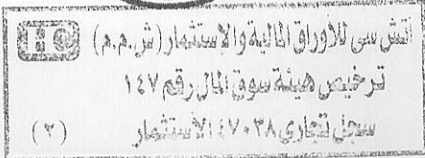 HC
اتش سى للأوراق المالية والاستثمار (ش.م.م)
ترخيص هيئة سوق المال رقم ١٤٧
سجل تجارى ٤٧٠٣٨ الأستثمار
(٢)